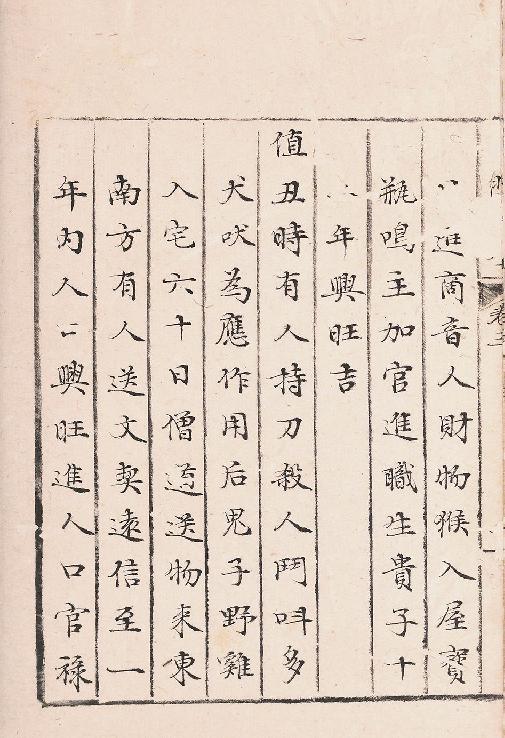 進商音人財物猴入屋寳
瓶鳴主加官進職生貴子十
年興旺吉
值丑時有人持刀殺人鬥呌多
犬吠為應作用后鬼子野雞
入宅六十日僧道送物来東
南方有人送文契遠信至一
年内人口興旺進人口官禄